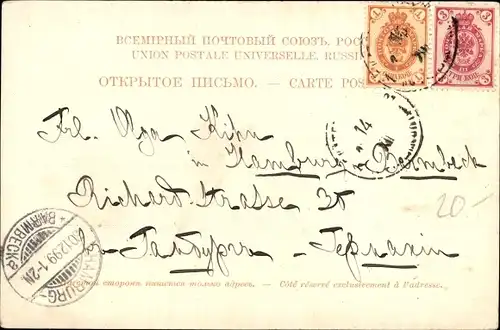 ВСЕМІРНЫЙ ПОЧТОВЫЙ СОЮЗЪ. РОС
UNION POSTALE UNIVERSELLE. RUSSI
ОТКРЫТОЕ ПИСЬМО. — CARTE POS
1 1
3 3
ТРИ КОП.
14
XII
Frl. Olga Kihn
in Hamburg-Barmbeck
Richard-Strasse 35
20.-
въ Гамбургъ - Германiи
HAMBURG-BARMBECK a
30.12.99.1-2N.
сторонѣ пишется только адресъ. — Côté réservé exclusivement à l'adresse.